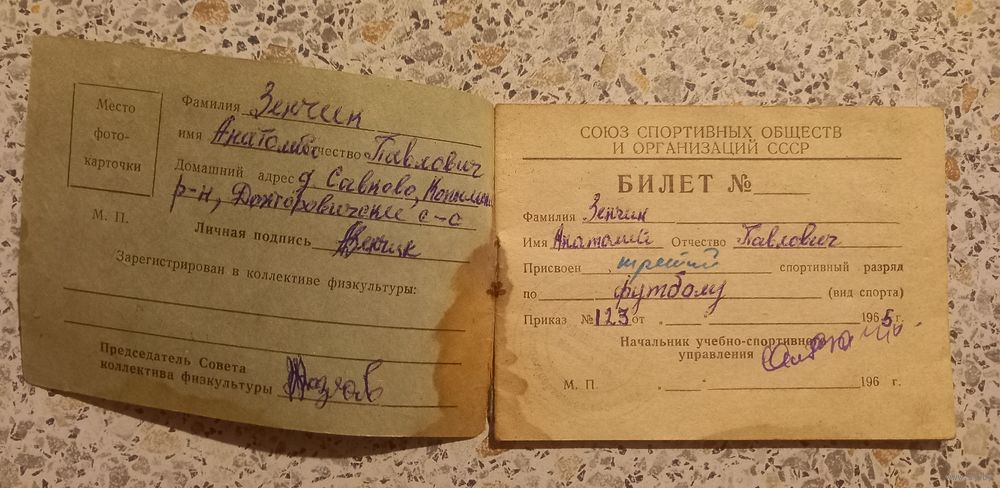 Место
фото-
карточки
Фамилия Зенчик
имя Анатолий отчество Павлович
Домашний адрес д. Савково, Копыльс
р-н, Докторовичский с-с
М. П.
Личная подпись АЗенчик
Зарегистрирован в коллективе физкультуры:
Председатель Совета
коллектива физкультуры
СОЮЗ СПОРТИВНЫХ ОБЩЕСТВ
И ОРГАНИЗАЦИЙ СССР
БИЛЕТ №
Фамилия Зенчик
Имя Анатолий Отчество Павлович
Присвоен третий спортивный разряд
по футболу (вид спорта)
Приказ № 123 от „ 1965 г.
Начальник учебно-спортивного
управления
М. П. „ “ 196 г.